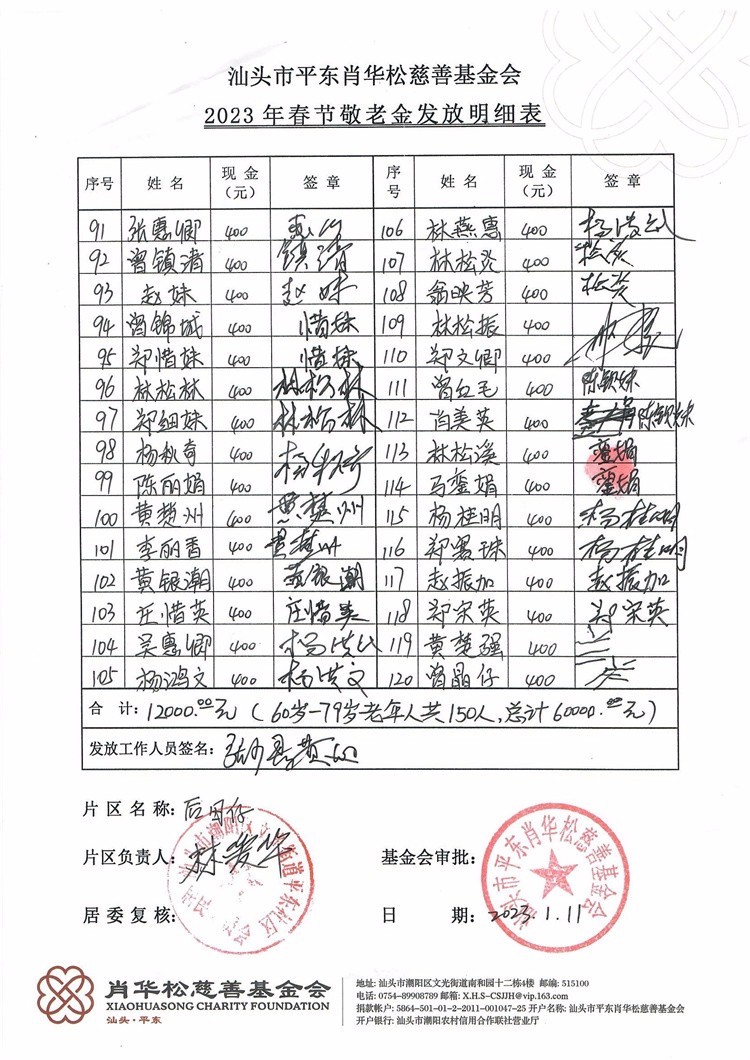 汕头市平东肖华松慈善基金会
2023年春节敬老金发放明细表
序号 姓名 现金（元） 签章 序号 姓名 现金（元） 签章
91 张惠卿 400 106 林燕惠 400
92 曾镇清 400 镇清 107 林松 400
93 赵妹 400 赵妹 108 翁映芳 400
94 曾锦城 400 惜妹 109 林松振 400
95 郑惜妹 400 惜妹 110 郑文卿 400
96 林松林 400 林松林 111 曾红毛 400 陈银妹
97 郑细妹 400 林松林 112 肖美英 400 陈银妹
98 杨秋奇 400 113 林松溪 400 銮娟
99 陈丽娟 400 114 马銮娟 400 銮娟
100 黄楚州 400 黄楚州 115 杨桂明 400 杨桂明
101 李丽香 400 黄楚州 116 郑 珠 400 杨桂明
102 黄银潮 400 黄银潮 117 赵振加 400 赵振加
103 庄惜英 400 庄惜英 118 郑宋英 400 郑宋英
104 吴惠卿 400 119 黄楚强 400
105 杨鸿文 400 杨洪文 120 曾晶仔 400
合计：12000.00元（60岁-79岁老年人共150人，总计60000.00元）
发放工作人员签名：
片区名称：后田仔
片区负责人：
基金会审批：
居委复核：
日期：2023.1.11
汕头市平东肖华松慈善基金会
肖华松慈善基金会
XIAOHUASONG CHARITY FOUNDATION
汕头·平东
地址: 汕头市潮阳区文光街道南和园十二栋4楼 邮编: 515100
电话: 0754-89908789 邮箱: X.H.S-CSJJH@vip.163.com
捐款帐户: 5864-501-01-2-2011-001047-25 开户名称: 汕头市平东肖华松慈善基金会
开户银行: 汕头市潮阳农村信用合作联社营业厅